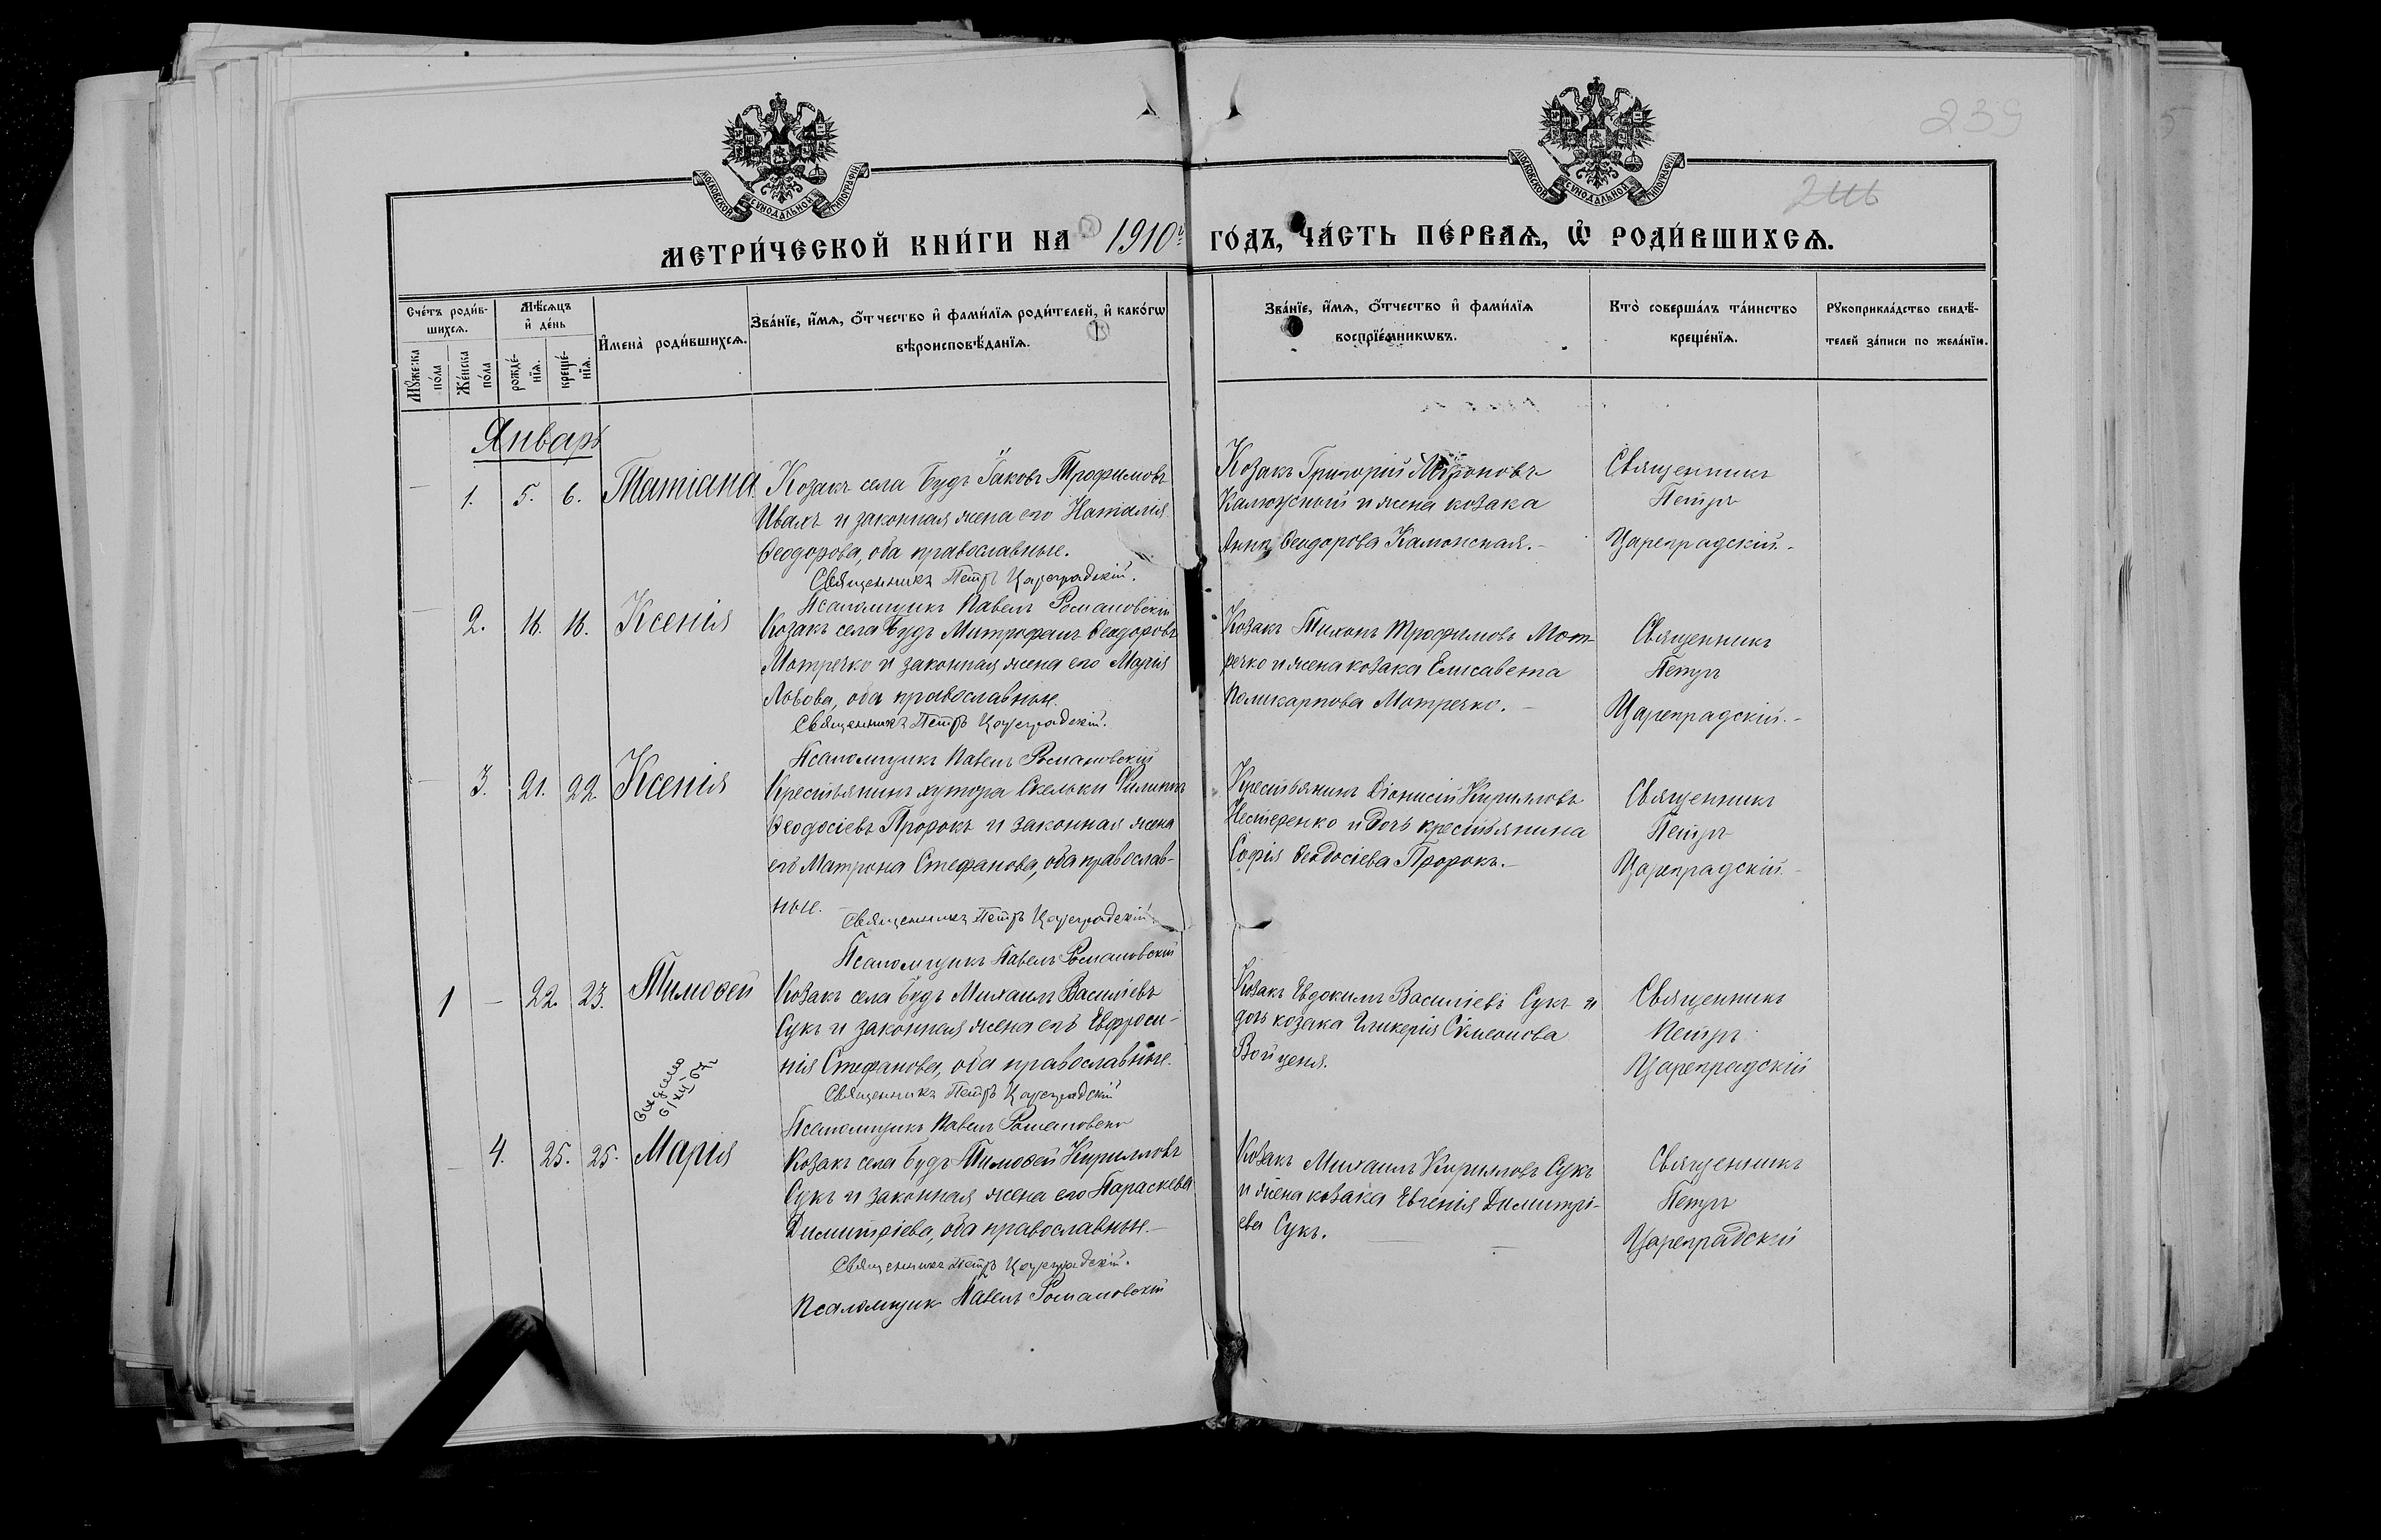 239
МОСКОВСКОЙ СѴНОДАЛЬНОЙ ТИПОГРАФІИ
МОСКОВСКОЙ СѴНОДАЛЬНОЙ ТИПОГРАФІИ
МЕТРИ́ЧЕСКОЙ КНИ́ГИ НА 1910 г. ГО́ДЪ, ЧА́СТЬ ПЕ́РВАѦ, Ѡ҆ РОДИ́ВШИХСѦ.
Сче́тъ роди́в-
шихсѧ.
Мꙋ́жеска
по́ла
Же́нска
по́ла
Мѣ́сѧцъ
и҆ де́нь
рожде́-
нїѧ.
креще́-
нїѧ.
И҆мена̀ роди́вшихсѧ.
Зва́нїе, и҆́мѧ, ѻ҆́тчество и҆ фами́лїѧ роди́телей, и҆ како́гѡ
вѣроисповѣ́данїѧ.
Зва́нїе, и҆́мѧ, ѻ҆́тчество и҆ фами́лїѧ
воспрїе́мникѡвъ.
Кто̀ соверша́лъ та́инство
креще́нїѧ.
Рꙋкоприкла́дство свидѣ́-
телей за́писи по жела́нїи.
Январь
— 1. 5. 6. Татіана
Козакъ села Будъ Іаковъ Трофимовъ
Ивахъ и законная жена его Наталія
Ѳеодорова, оба православные.
Священникъ Петръ Цареградскій.
Псаломщикъ Павелъ Романовскій
Козакъ Григорій Мѵроновъ
Калюжный и жена козака
Анна Ѳеодорова Калюжная.—
Священникъ
Петръ
Цареградскій.—
— 2. 16. 16. Ксенія
Козакъ села Будъ Митрофанъ Ѳеодоровъ
Мотречко и законная жена его Марія
Львова, оба православные.
Священникъ Петръ Цареградскій.
Псаломщикъ Павелъ Романовскій
Козакъ Тихонъ Трофимовъ Мот-
речко и жена козака Елисавета
Поликарпова Мотречко.—
Священникъ
Петръ
Цареградскій.—
— 3. 21. 22. Ксенія
Крестьянинъ хутора Скельки Филиппъ
Ѳеодосіевъ Пророкъ и законная жена
его Матрона Стефанова, оба православ-
ные.
Священникъ Петръ Цареградскій.
Псаломщикъ Павелъ Романовскій
Крестьянинъ Діонисій Кирилловъ
Нестеренко и дочь крестьянина
Софія Ѳеодосіева Пророкъ.—
Священникъ
Петръ
Цареградскій.—
1 — 22. 23. Тимоѳей
Козакъ села Будъ Михаилъ Василіевъ
Сукъ и законная жена его Евфроси-
нія Стефанова, оба православные.
Священникъ Петръ Цареградскій
Псаломщикъ Павелъ Романовскій
Козакъ Евдокимъ Василіевъ Сукъ и
дочь козака Гликерія Сѵмеонова
Войценя.
Священникъ
Петръ
Цареградскій
— 4. 25. 25. Марія
Козакъ села Будъ Тимоѳей Кирилловъ
Сукъ и законная жена его Параскева
Димитріева, оба православные.—
Священникъ Петръ Цареградскій.
Псаломщикъ Павелъ Романовскій
Козакъ Михаилъ Кирилловъ Сукъ
и жена козака Евгенія Димитрі-
ева Сукъ.
Священникъ
Петръ
Цареградскій